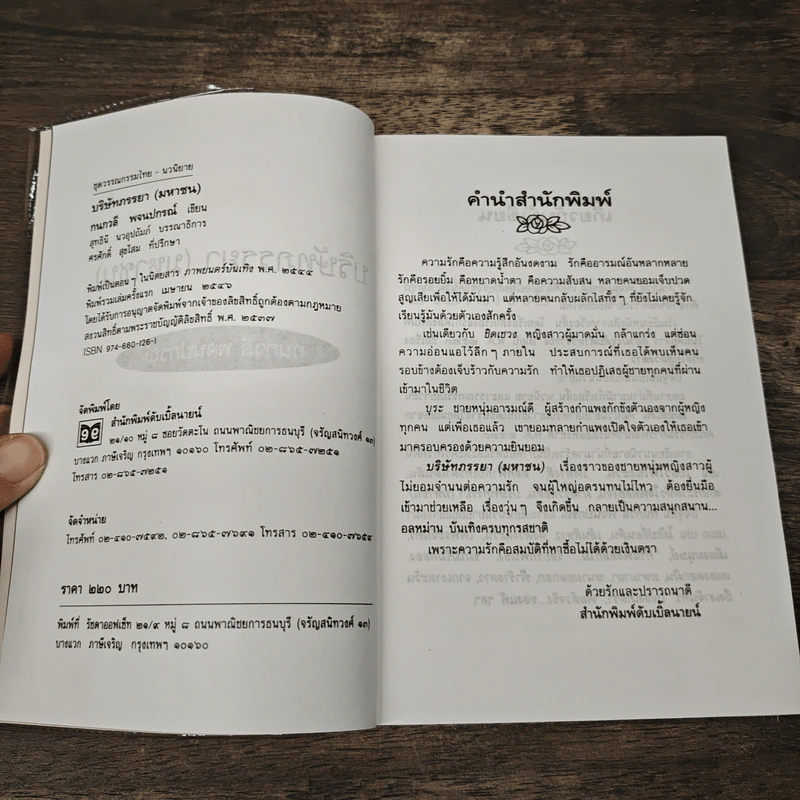 ชุดวรรณกรรมไทย - นวนิยาย
บริษัทภรรยา (มหาชน)
กนกวลี พจนปกรณ์ เขียน
สุทธินี นวอุปถัมภ์ บรรณาธิการ
ศรศักดิ์ สุขโสม ที่ปรึกษา
พิมพ์เป็นตอนๆ ในนิตยสาร ภาพยนตร์บันเทิง พ.ศ. ๒๕๔๔
พิมพ์รวมเล่มครั้งแรก เมษายน ๒๕๔๖
โดยได้รับการอนุญาตจัดพิมพ์จากเจ้าของลิขสิทธิ์ถูกต้องตามกฎหมาย
สงวนสิทธิ์ตามพระราชบัญญัติลิขสิทธิ์ พ.ศ. ๒๕๓๗
ISBN 974-660-126-1
จัดพิมพ์โดย
สำนักพิมพ์ดับเบิ้ลนายน์
๒๑/๑๐ หมู่ ๘ ซอยวัดตะโน ถนนพาณิชยการธนบุรี (จรัญสนิทวงศ์ ๑๓)
บางแวก ภาษีเจริญ กรุงเทพฯ ๑๐๑๖๐ โทรศัพท์ ๐๒-๘๖๕-๗๒๕๑
โทรสาร ๐๒-๘๖๕-๗๒๕๑
จัดจำหน่าย
โทรศัพท์ ๐๒-๔๑๐-๗๕๙๒, ๐๒-๘๖๕-๗๖๙๑ โทรสาร ๐๒-๔๑๐-๗๖๕๙
ราคา ๒๒๐ บาท
พิมพ์ที่ รัชดาออฟเซ็ท ๒๑/๙ หมู่ ๘ ถนนพาณิชยการธนบุรี (จรัญสนิทวงศ์ ๑๓)
บางแวก ภาษีเจริญ กรุงเทพฯ ๑๐๑๖๐
คำนำสำนักพิมพ์
ความรักคือความรู้สึกอันงดงาม รักคืออารมณ์อันหลากหลาย
รักคือรอยยิ้ม คือหยาดน้ำตา คือความสับสน หลายคนยอมเจ็บปวด
สูญเสียเพื่อให้ได้มันมา แต่หลายคนกลับผลักไสทั้งๆ ที่ยังไม่เคยรู้จัก
เรียนรู้มันด้วยตัวเองสักครั้ง
เช่นเดียวกับ ชิดเชวง หญิงสาวผู้มาดมั่น กล้าแกร่ง แต่ซ่อน
ความอ่อนแอไว้ลึกๆ ภายใน ประสบการณ์ที่เธอได้พบเห็นคน
รอบข้างต้องเจ็บร้าวกับความรัก ทำให้เธอปฏิเสธผู้ชายทุกคนที่ผ่าน
เข้ามาในชีวิต
บุระ ชายหนุ่มอารมณ์ดี ผู้สร้างกำแพงกักขังตัวเองจากผู้หญิง
ทุกคน แต่เพื่อเธอแล้ว เขายอมทลายกำแพงเปิดใจตัวเองให้เธอเข้า
มาครอบครองด้วยความยินยอม
บริษัทภรรยา (มหาชน) เรื่องราวของชายหนุ่มหญิงสาวผู้
ไม่ยอมจำนนต่อความรัก จนผู้ใหญ่อดรนทนไม่ไหว ต้องยื่นมือ
เข้ามาช่วยเหลือ เรื่องวุ่นๆ จึงเกิดขึ้น กลายเป็นความสนุกสนาน...
อลหม่าน บันเทิงครบทุกรสชาติ
เพราะความรักคือสมบัติที่หาซื้อไม่ได้ด้วยเงินตรา
ด้วยรักและปรารถนาดี
สำนักพิมพ์ดับเบิ้ลนายน์